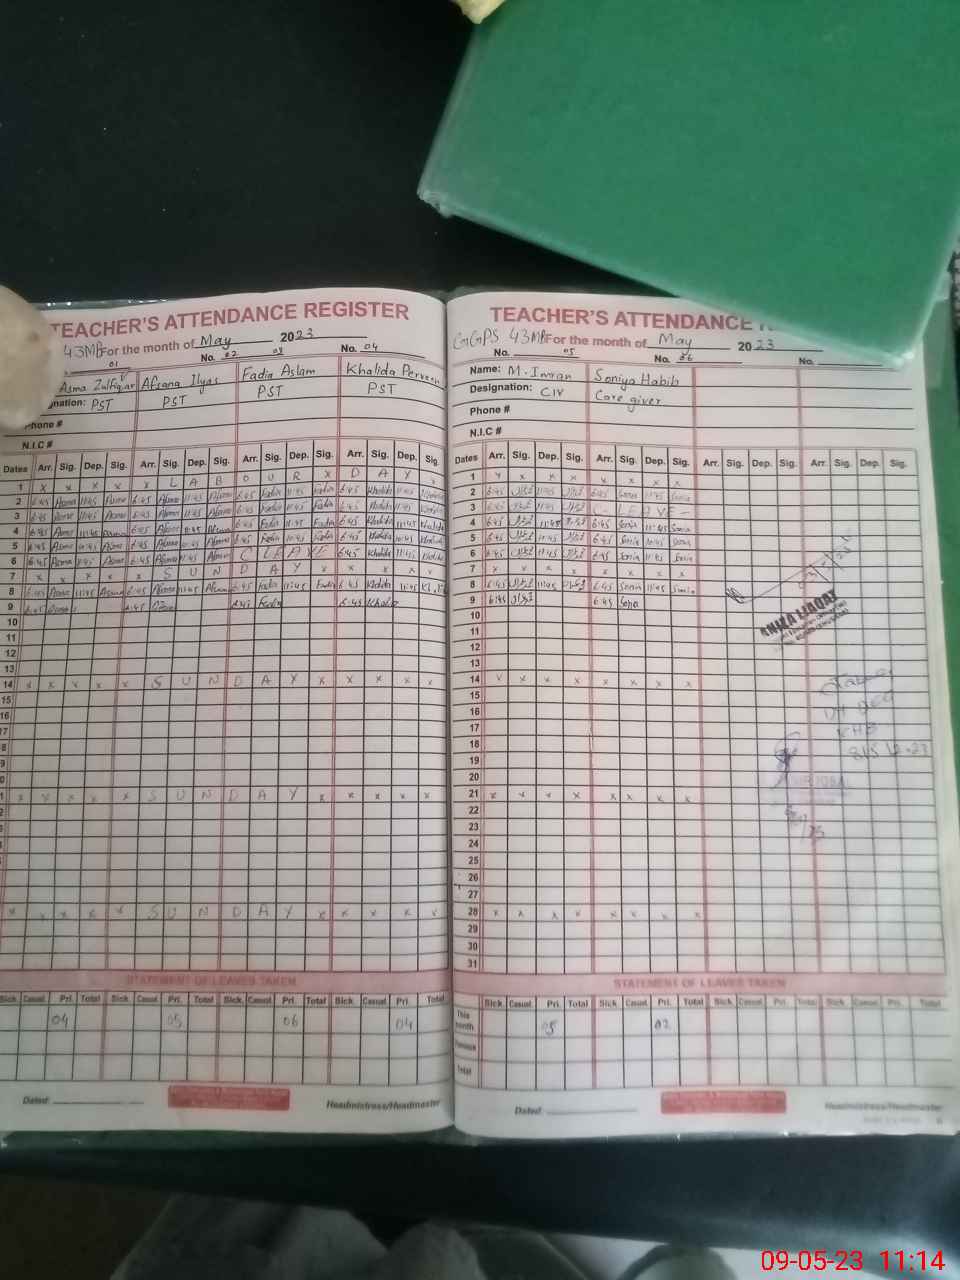 TEACHER'S ATTENDANCE REGISTER
43MB For the month of May 2023
01 No. 02 03 No. 04
Asma Zulfiqar Afsana Ilyas Fadia Aslam Khalida Perveen
nation: PST PST PST PST
Phone #
N.I.C #
Dates Arr. Sig. Dep. Sig. Arr. Sig. Dep. Sig. Arr. Sig. Dep. Sig. Arr. Sig. Dep. Sig.
1 x x x x x L A B O U R x D A Y x
2 6:45 Asma 11:45 Asma 6:45 Afsana 11:45 Afsana 6:45 Fadia 11:45 Fadia 6:45 Khalida 11:45 Khalida
3 6:45 Asma 11:45 Asma 6:45 Afsana 11:45 Afsana 6:45 Fadia 11:45 Fadia 6:45 Khalida 11:45 Khalida
4 6:45 Asma 11:45 Asma 6:45 Afsana 11:45 Afsana 6:45 Fadia 11:45 Fadia 6:45 Khalida 11:45 Khalida
5 6:45 Asma 11:45 Asma 6:45 Afsana 11:45 Afsana 6:45 Fadia 11:45 Fadia 6:45 Khalida 11:45 Khalida
6 6:45 Asma 11:45 Asma 6:45 Afsana 11:45 Afsana C LEAVE 6:45 Khalida 11:45 Khalida
7 x x x x x S U N D A Y x x x x x
8 6:45 Asma 11:45 Asma 6:45 Afsana 11:45 Afsana 6:45 Fadia 11:45 Fadia 6:45 Khalida 11:45
9 6:45 6:45 6:45 Fadia 6:45 Khalida
10
11
12
13
14 x x x x x S U N D A Y x x x x x
15
16
17
8
9
0
1 x x x x x S U N D A Y x x x x x
2
x x x x x S U N D A Y x x x x x
STATEMENT OF LEAVES TAKEN
Sick Casual Pri. Total Sick Casual Pri. Total Sick Casual Pri. Total Sick Casual Pri. Total
04 05 06 04
Dated:
Headmistress/Headmaster
TEACHER'S ATTENDANCE R
GGPS 43MB For the month of May 2023
No. 05 No. 06 No.
Name: M. Imran Soniya Habib
Designation: CIV Care giver
Phone #
N.I.C #
Dates Arr. Sig. Dep. Sig. Arr. Sig. Dep. Sig. Arr. Sig. Dep. Sig. Arr. Sig. Dep. Sig.
1 x x x x x x x x
2 6:45 11:45 6:45 Sonia 11:45 Sonia
3 6:45 11:45 C - LEAVE -
4 6:45 11:45 6:45 Sonia 11:45 Sonia
5 6:45 11:45 6:45 Sonia 11:45 Sonia
6 6:45 11:45 6:45 Sonia 11:45 Sonia
7 x x x x x x x x
8 6:45 11:45 6:45 Sonia 11:45 Sonia
9 6:45 6:45 Sonia
10
11
12
ANIKA LIAQAT
13
14 x x x x x x x x
15
16
17
18
19
20
21 x x x x x x x x
22
23
24
25
26
27
28 x x x x x x x x
29
30
31
STATEMENT OF LEAVES TAKEN
Sick Casual Pri. Total Sick Casual Pri. Total Sick Casual Pri. Total Sick Casual Pri. Total
This month 05 02
Total
Dated:
Headmistress/Headmaster
09-05-23 11:14